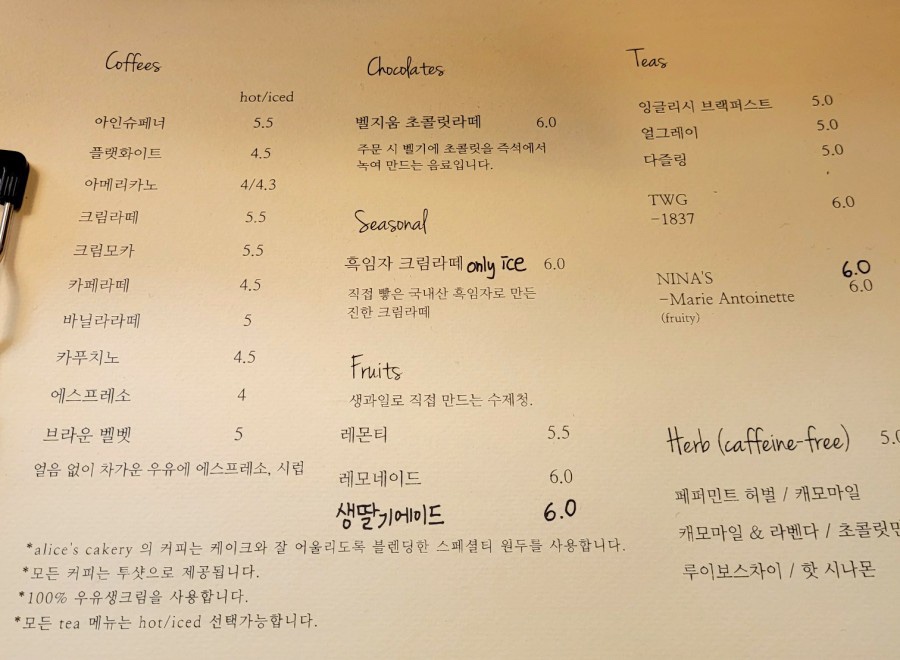 Coffees
hot/iced
아인슈페너 5.5
플랫화이트 4.5
아메리카노 4/4.3
크림라떼 5.5
크림모카 5.5
카페라떼 4.5
바닐라라떼 5
카푸치노 4.5
에스프레소 4
브라운 벨벳 5
얼음 없이 차가운 우유에 에스프레소, 시럽
Chocolates
벨지움 초콜릿라떼 6.0
주문 시 벨기에 초콜릿을 즉석에서
녹여 만드는 음료입니다.
Seasonal
흑임자 크림라떼 only ice 6.0
직접 빻은 국내산 흑임자로 만든
진한 크림라떼
Fruits
생과일로 직접 만드는 수제청.
레몬티 5.5
레모네이드 6.0
생딸기에이드 6.0
Teas
잉글리시 브랙퍼스트 5.0
얼그레이 5.0
다즐링 5.0
TWG 6.0
-1837
NINA'S 6.0
-Marie Antoinette 6.0
(fruity)
Herb (caffeine-free) 5.0
페퍼민트 허벌 / 캐모마일
캐모마일 & 라벤다 / 초콜릿민
루이보스차이 / 핫 시나몬
*alice's cakery 의 커피는 케이크와 잘 어울리도록 블렌딩한 스페셜티 원두를 사용합니다.
*모든 커피는 투샷으로 제공됩니다.
*100% 우유생크림을 사용합니다.
*모든 tea 메뉴는 hot/iced 선택가능합니다.